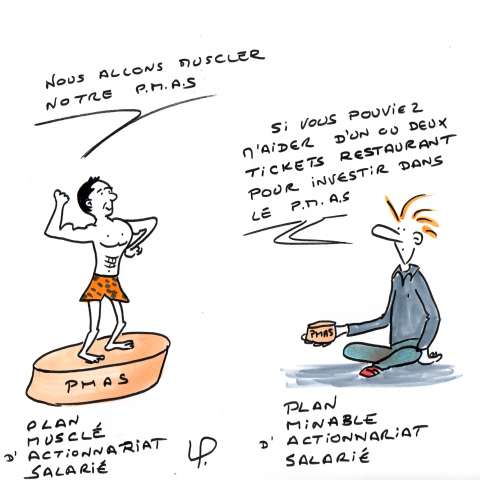 NOUS ALLONS MUSCLER
NOTRE P.M.A.S
SI VOUS POUVIEZ
M'AIDER D'UN OU DEUX
TICKETS RESTAURANT
POUR INVESTIR DANS
LE P.M.A.S
PMAS
PMAS
PLAN
MUSCLÉ
D'ACTIONNARIAT
SALARIÉ
PLAN
MINABLE
D'ACTIONNARIAT
SALARIÉ